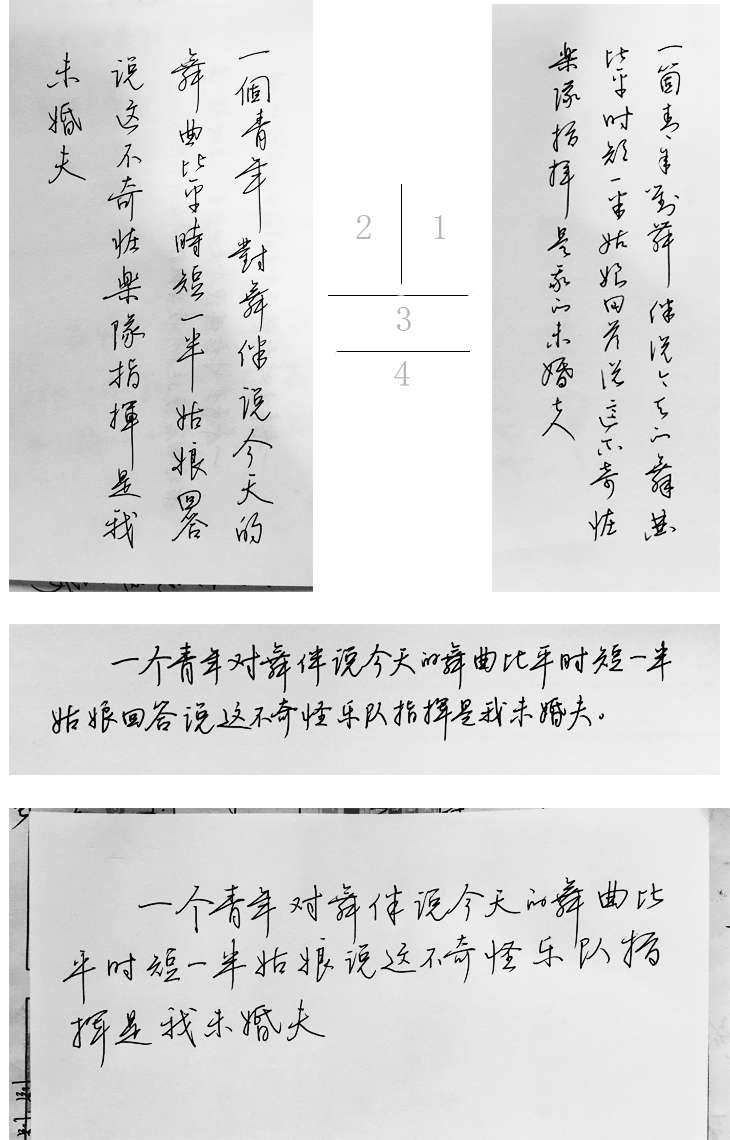 一箇青年對舞伴说今天的舞曲
比平时短一半姑娘回答说这不奇怪
樂隊指揮是我的未婚夫
一個青年對舞伴说今天的
舞曲比平時短一半姑娘回答
说这不奇怪樂隊指揮是我
未婚夫
2
1
3
4
一个青年对舞伴说今天的舞曲比平时短一半
姑娘回答说这不奇怪乐队指挥是我未婚夫。
一个青年对舞伴说今天的舞曲比
平时短一半姑娘说这不奇怪乐队指
挥是我未婚夫